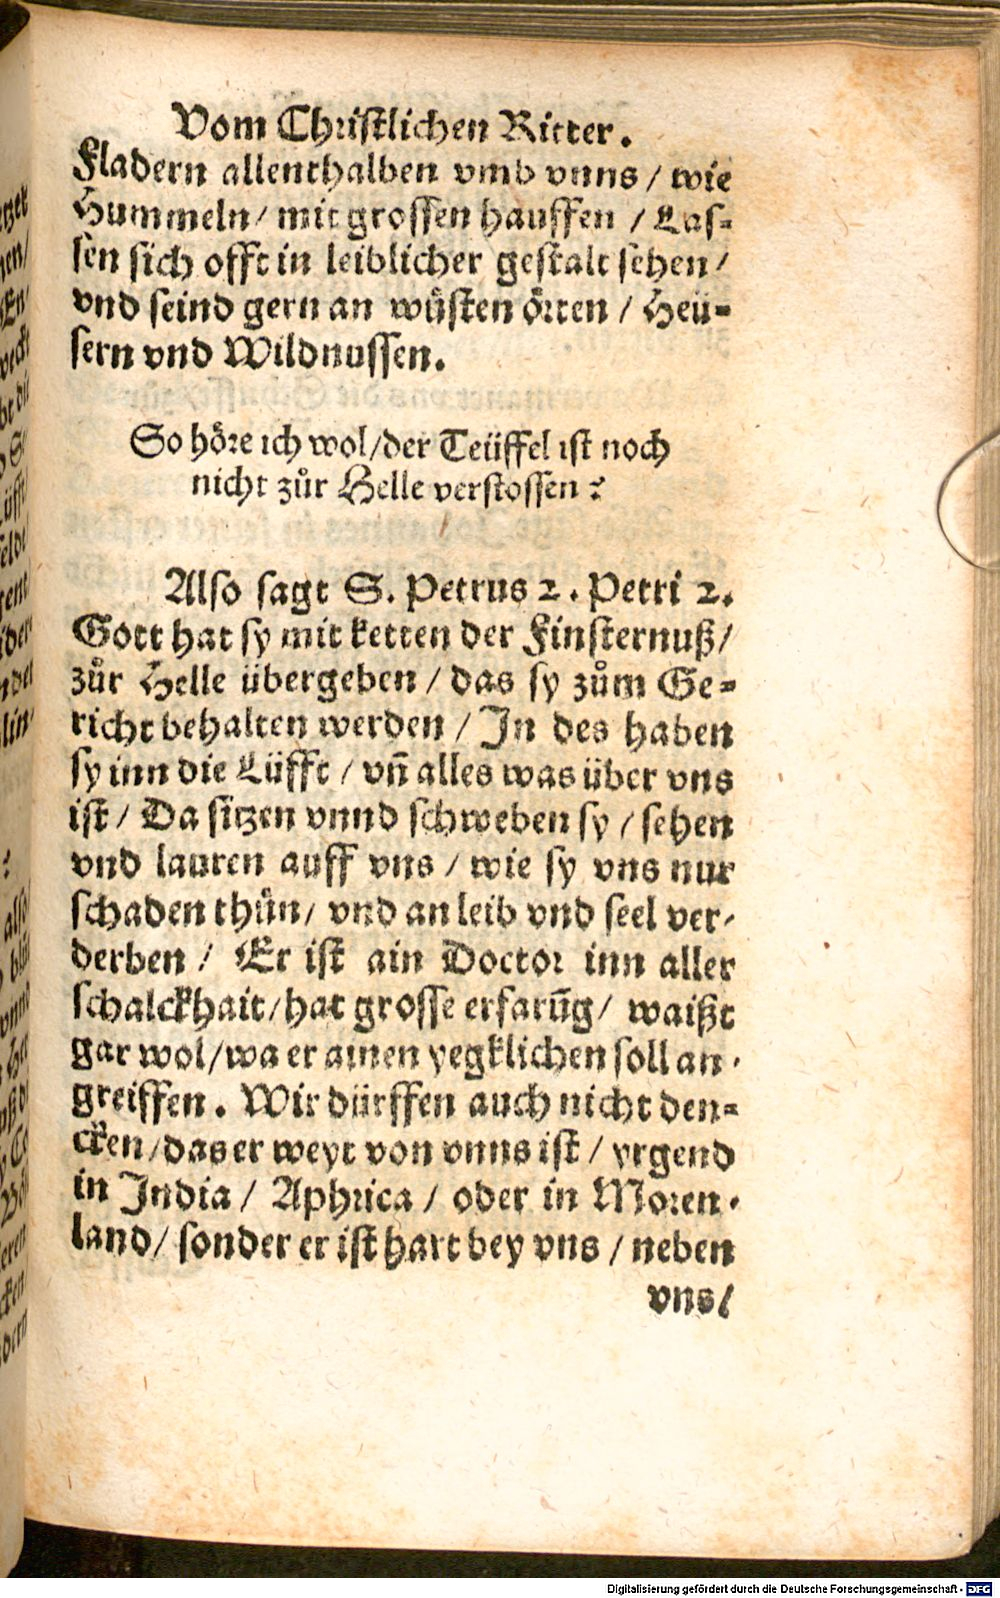 Vom Christlichen Ritter.
Fladern allenthalben vmb vnns / wie
Hummeln / mit grossen hauffen / Las-
sen sich offt in leiblicher gestalt sehen /
vnd seind gern an wüsten örten / Heü-
sern vnd Wildnussen.
So höre ich wol / der Teüffel ist noch
nicht zůr Helle verstossen ?
Also sagt S. Petrus 2. Petri 2.
Gott hat sy mit ketten der Finsternuß /
zůr Helle übergeben / das sy zům Ge-
richt behalten werden / In des haben
sy inn die Lüfft / vñ alles was über vns
ist / Da sitzen vnnd schweben sy / sehen
vnd lauren auff vns / wie sy vns nur
schaden thůn / vnd an leib vnd seel ver-
derben / Er ist ain Doctor inn aller
schalckhait / hat grosse erfarũg / waißt
gar wol / wa er ainen yegklichen soll an-
greiffen. Wir dürffen auch nicht den-
cken / das er weyt von vnns ist / yrgend
in India / Aphrica / oder in Moren-
land / sonder er ist hart bey vns / neben
vns /
Digitalisierung gefördert durch die Deutsche Forschungsgemeinschaft - DFG